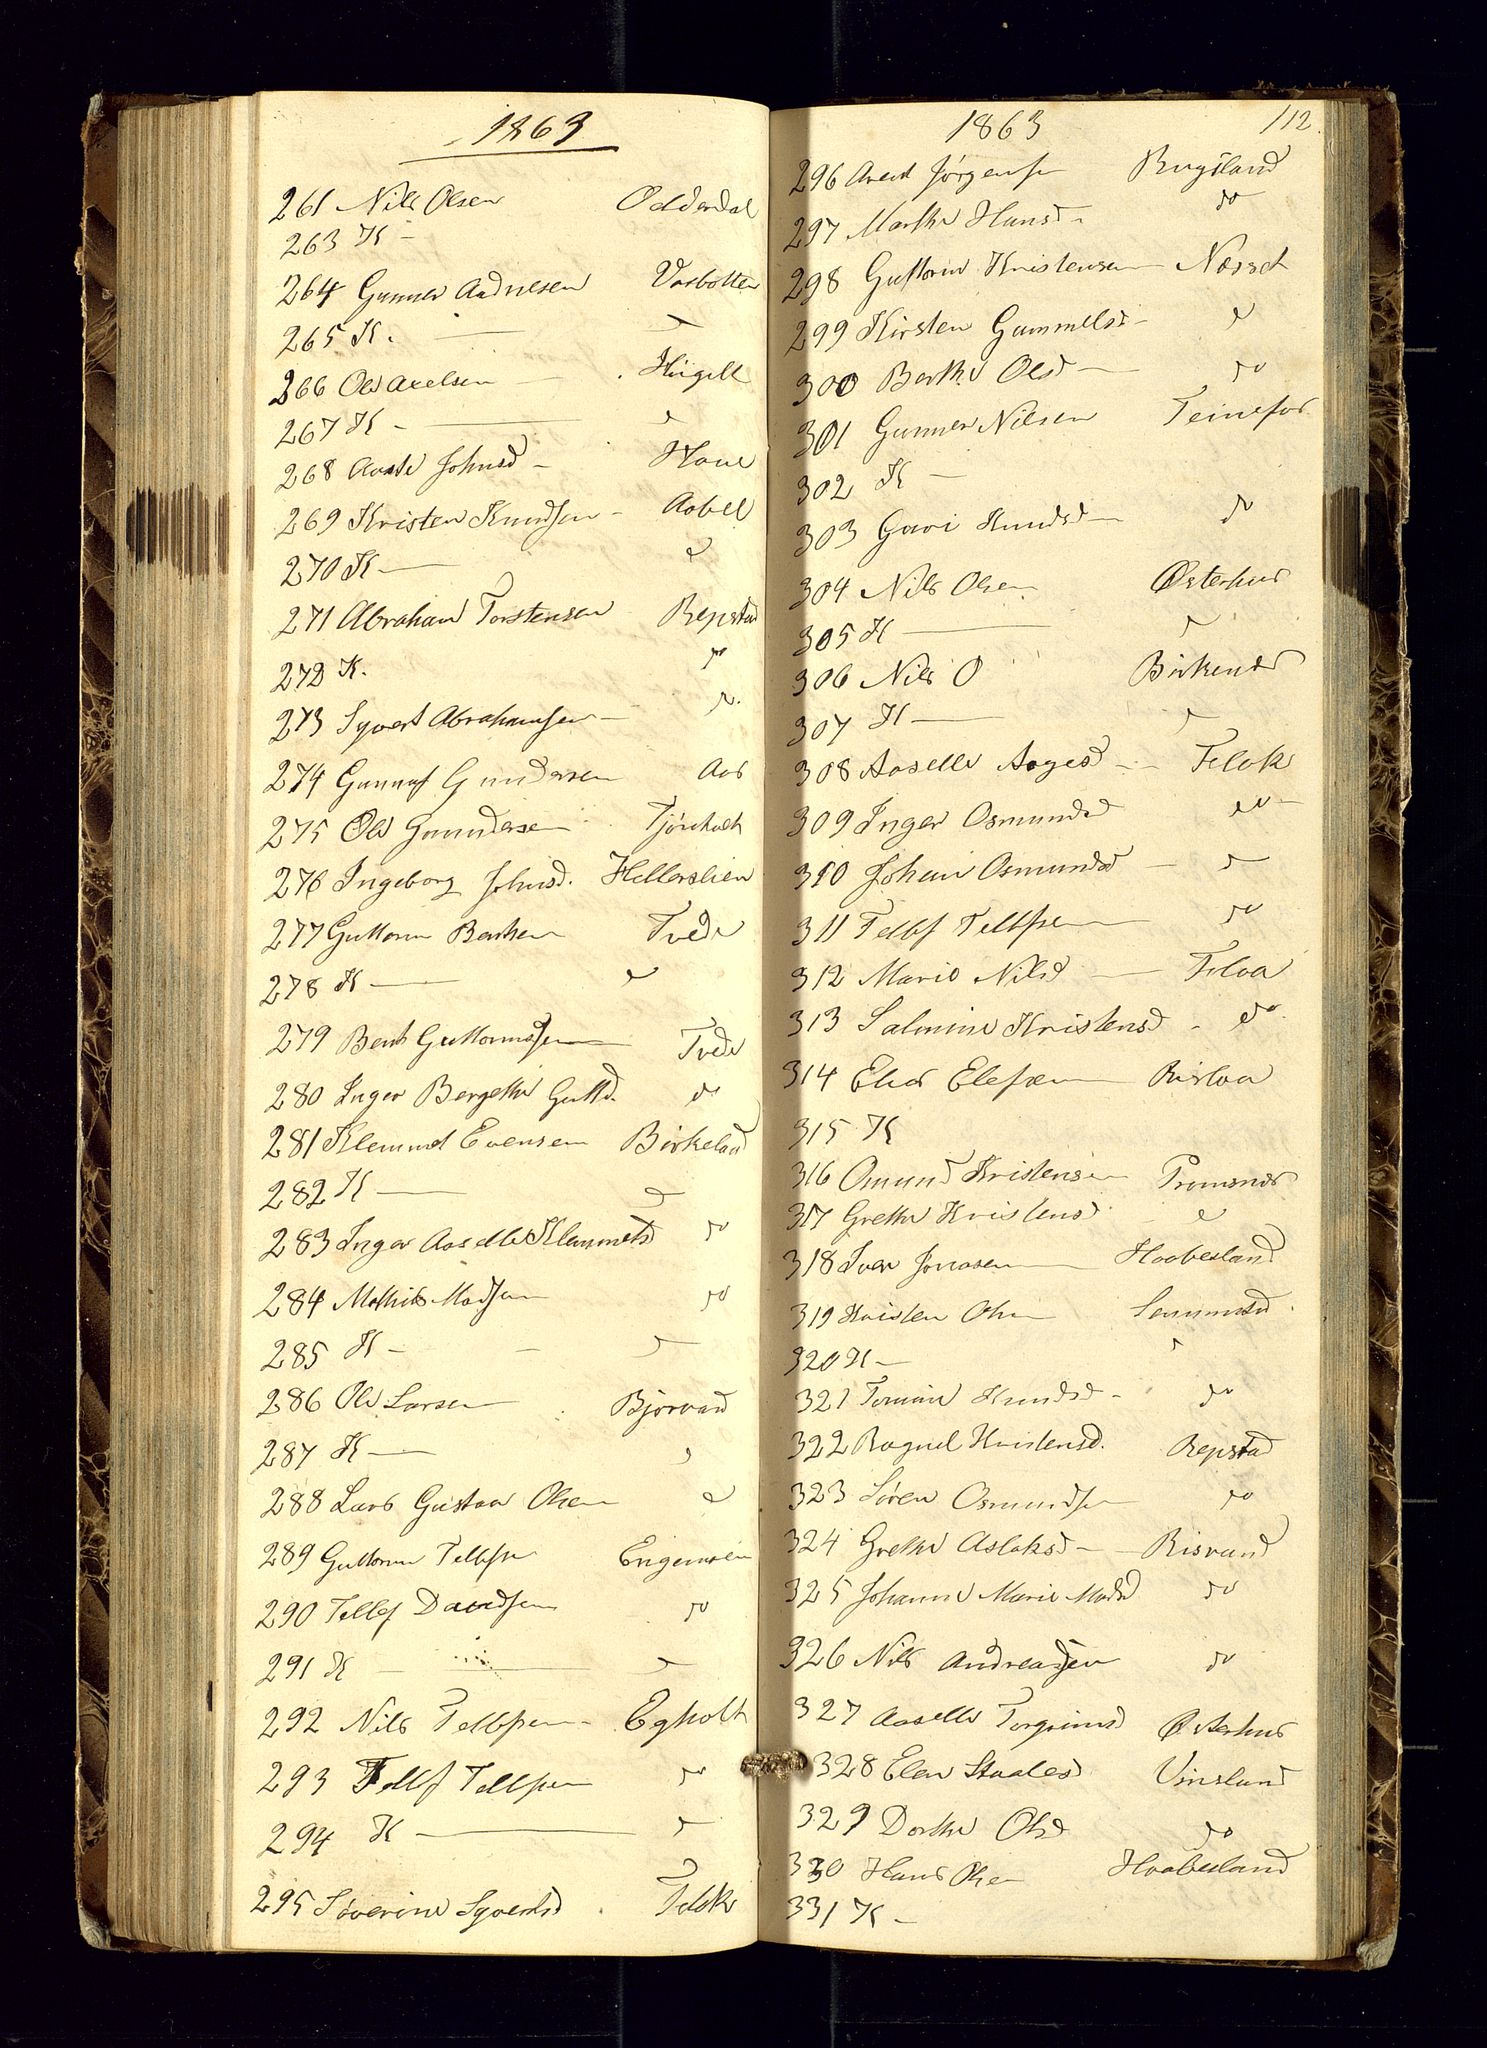 1863
261 Nils Olsen Odderdal
263 K -
264 Gunner Aadnesen Vasbotten
265 K. —
266 Ole Axelsen —
267 K - —
268 Johnsd - Hove
269 Kristen Knudsen - Aabel
270 K —
271 Abraham Torstensen Repstad
272 K. do
273 Syvert Abrahamsen — do
274 Gunnuf Gundersen Aas
275 Ole Gundersen
276 Ingeborg Johnsd. Hellerslien
277 Guttorm Bentsen Tvede
278 K —
279 Bent Guttormsen Tvede
280 Inger Bergethe Guttd. do
281 Klemmet Evensen Birkeland
282 K —
283 Inger Aaselle Klemmetsd do
284 Mathis Madsen do
285 K -
286 Ole Larsen Bjorvand
287 K —
288 Lars Gustav Olsen
289 Guttorm Tellefsen Engemoen
290 Tellef Davidsen do
291 K
292 Nils Tellefsen - Egholt
293 Tellef Tellefsen do
294 K —
295 Severine Syvertsd. Flak
1863 112.
296 Arent Jørgensen Bugsland
297 Marthe Hansd - do
298 Guttorm Kristensen Næsset
299 Kirsten Gammelsd -
300 Berthe Olsd — do
301 Gunner Nilsen Teinefos
302 K -
303 Guri Knudsd — do
304 Nils Olsen Østerhus
305 K —
306 Nils O Birkenes
307 K —
308 Aaselle Aagesd - Flak
309 Inger Osmundsd do
310 Osmundsd —
311 Tellef Tellefsen — do
312 Marie Nilsd — Floa
313 Salmine Kristensd - do
314 Elias Elefsen Risloa
315 K
316 Omund Kristensen Tromsnes
317 Grethe Kristensd
318 Iver Jonasen — Haabesland
319 Kristen Olsen
320 K -
321 Tomine Knudsd - do
322 Ragnel Kristensd. Repstad
323 Søren Osmundsen do
324 Grethe Aslaksd - Risvand
325 Johanne Marie Madsd do
326 Nils Andreasen do
327 Aaselle Torgrimsd Østerhus
328 Elen Staalesd Vinsland
329 Dorthe Olsd do
330 Hans Olsen Haabesland
331 K -